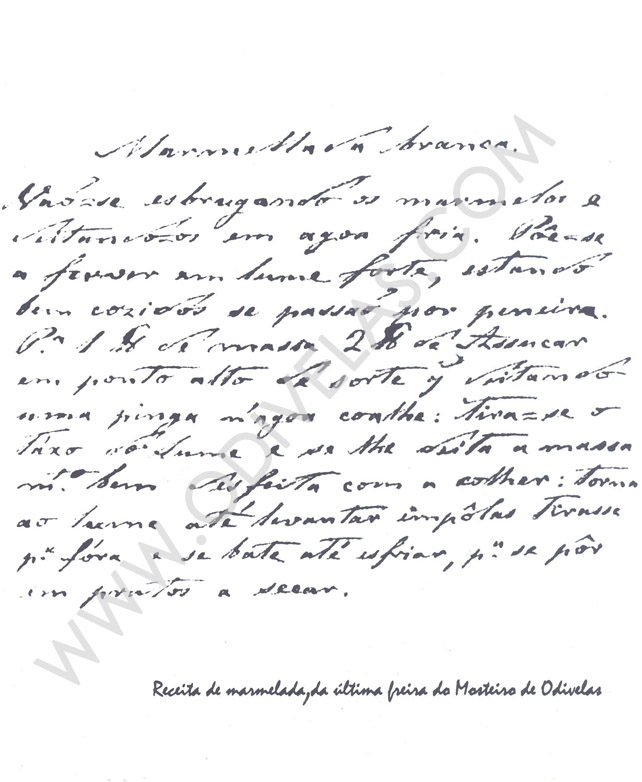 Marmellada branca.
Vaõ=se esbrugando os marmelos e
deitando=os em agoa fria. Põe=se
a ferver em lume forte, estando
bem cozidos se passaõ por peneira.
P.ª 1 ℔ de massa 2 ℔ de Assucar
em ponto alto de sorte q̃ deitando
uma pinga n'agoa coalhe: tira=se o
taxo do lume e se lhe deita a massa
m.º bem desfeita com a colher: torna
ao lume até levantar impôlas tirasse
p.ª fóra e se bate até esfriar, p.ª se pôr
em pratos a seccar.
WWW.ODIVELAS.COM
Receita de marmelada,da última freira do Mosteiro de Odivelas